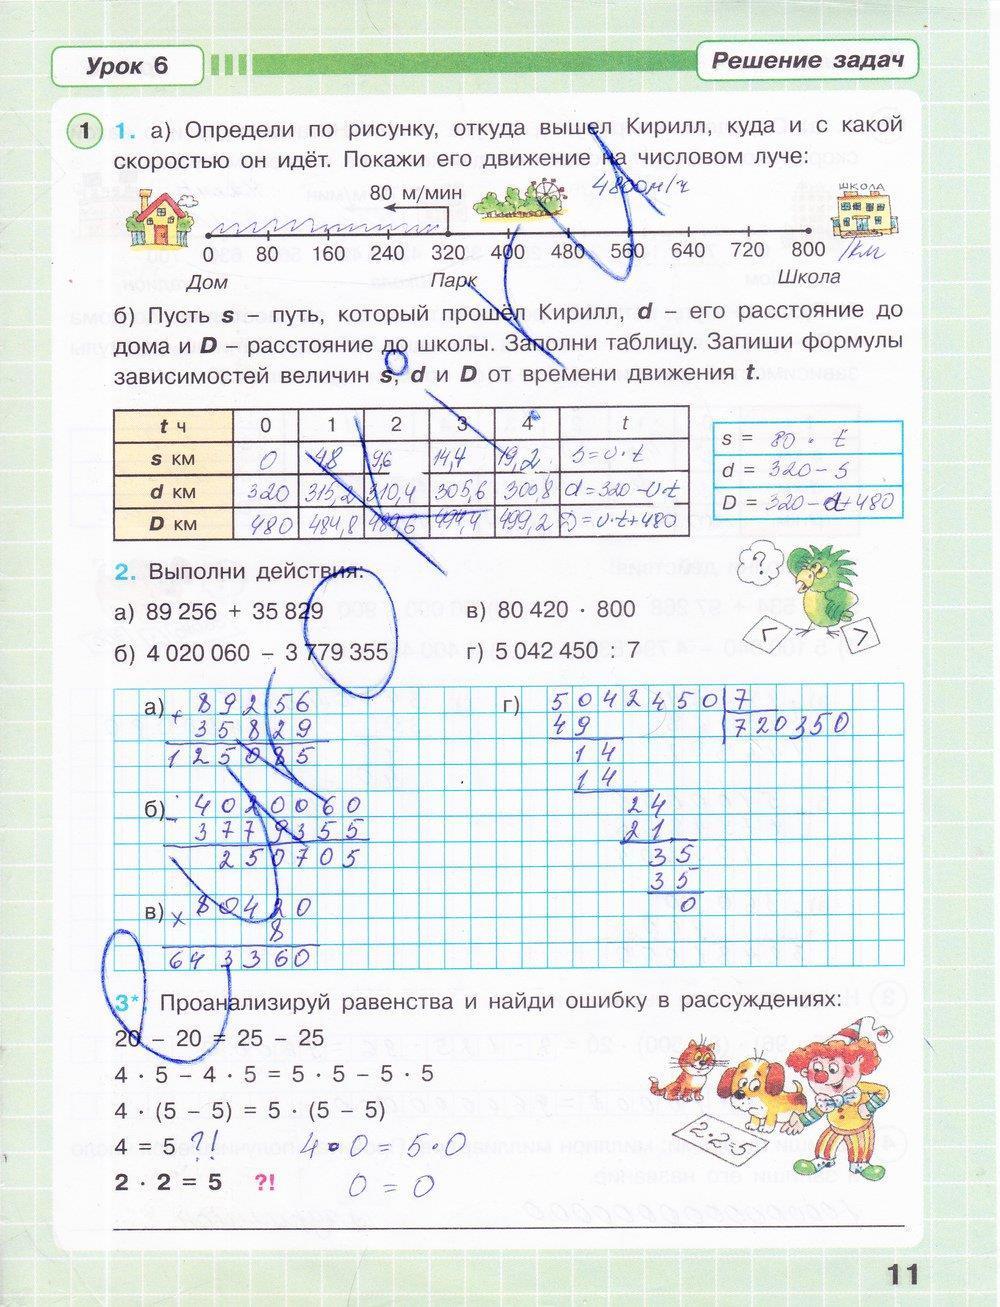 Урок 6
Решение задач
1 1. а) Определи по рисунку, откуда вышел Кирилл, куда и с какой
скоростью он идёт. Покажи его движение на числовом луче:
80 м/мин
4800м/ч
ШКОЛА
0 80 160 240 320 400 480 560 640 720 800 1км
Дом Парк Школа
б) Пусть s – путь, который прошёл Кирилл, d – его расстояние до
дома и D – расстояние до школы. Заполни таблицу. Запиши формулы
зависимостей величин s, d и D от времени движения t.
t ч 0 1 2 3 4 t
s км 0 48 96 14,4 19,2 s=v·t
d км 320 315,2 310,4 305,6 300,8 d=320-v·t
D км 480 484,8 489,6 494,4 499,2 D=v·t+480
s = 80 · t
d = 320-s
D = 320-d+480
2. Выполни действия:
?
< >
а) 89 256 + 35 829 в) 80 420 · 800
б) 4 020 060 – 3 779 355 г) 5 042 450 : 7
а) + 89256
35829
125085
б) - 4020060
3779355
250705
в) x 80420
8
643360
г) 5042450 7
49 720350
14
14
24
21
35
35
0
3* Проанализируй равенства и найди ошибку в рассуждениях:
20 – 20 = 25 – 25
4 · 5 – 4 · 5 = 5 · 5 – 5 · 5
4 · (5 – 5) = 5 · (5 – 5)
4 = 5 ?! 4·0=5·0
2 · 2 = 5 ?! 0=0
2·2=5
11